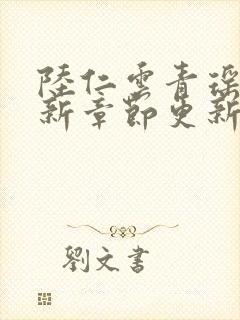 陸仁雲青瑶
新章節更新
劉文書